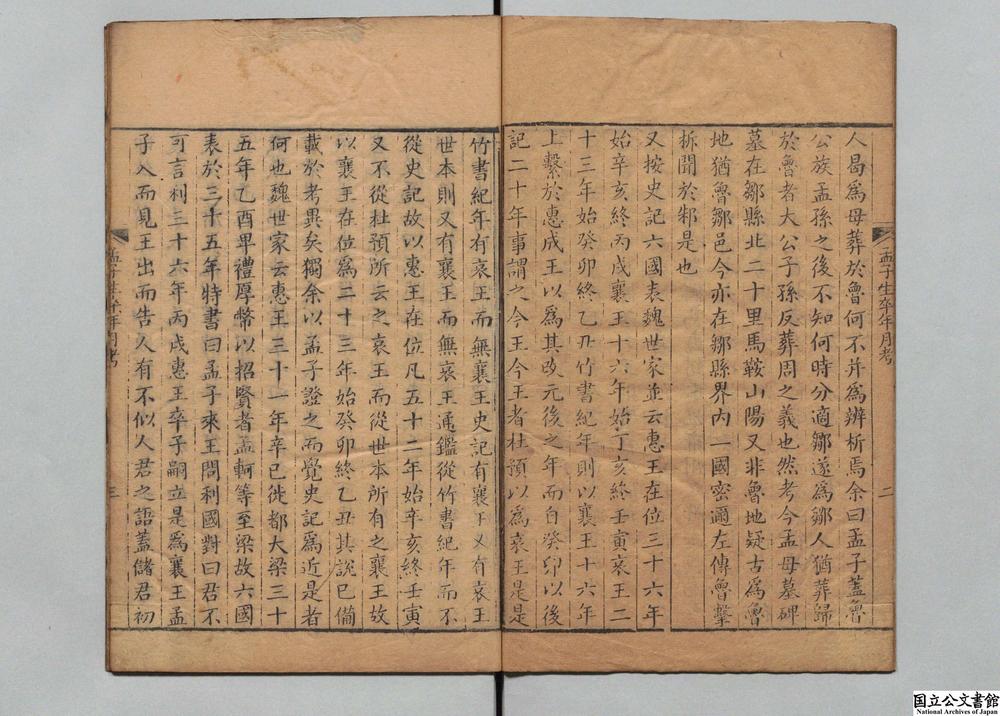 人曷為母葬於魯何不并為辨析焉余曰孟子蓋魯
公族孟孫之後不知何時分適鄒遂為鄒人猶葬歸
於魯者大公子孫反葬周之義也然考今孟母墓碑
墓在鄒縣北二十里馬鞍山陽又非魯地疑古為魯
地猶魯鄒邑今亦在鄒縣界內一國密邇左傳魯擊
柝聞於邾是也
又按史記六國表魏世家並云惠王在位三十六年
始辛亥終丙戌襄王十六年始丁亥終壬寅哀王二
十三年始癸卯終乙丑竹書紀年則以襄王十六年
上繫於惠成王以為其改元後之年而自癸卯以後
記二十年事謂之今王今王者杜預以為哀王是是
孟子生卒年月考
二
竹書紀年有哀王而無襄王史記有襄王又有哀王
世本則又有襄王而無哀王通鑑從竹書紀年而不
從史記故以惠王在位凡五十二年始辛亥終壬寅
又不從杜預所云之哀王而從世本所有之襄王故
以襄王在位為二十三年始癸卯終乙丑其說已備
載於考異矣獨余以孟子證之而覺史記為近是者
何也魏世家云惠王三十一年辛巳徙都大梁三十
五年乙酉卑禮厚幣以招賢者孟軻等至梁故六國
表於三十五年特書曰孟子來王問利國對曰君不
可言利三十六年丙戌惠王卒子嗣立是為襄王孟
子入而見王出而告人有不似人君之語蓋儲君初
孟子生卒年月考
三
国立公文書館
National Archives of Japan